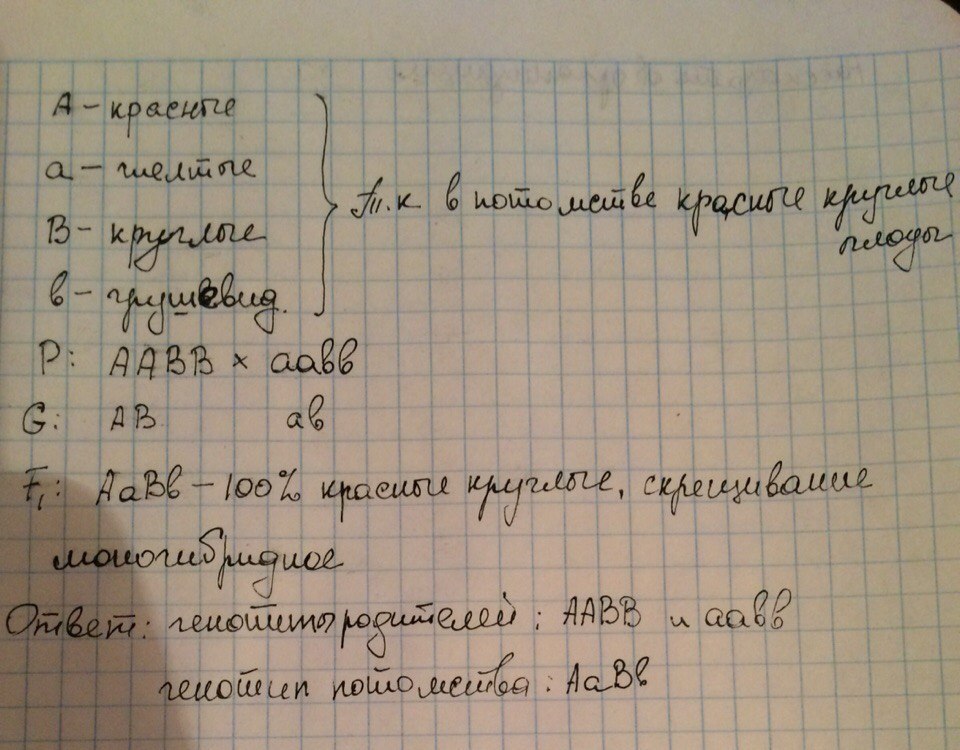 А - красные
а - желтые
В - круглые
в - грушевид.
Т.к в потомстве красные круглые
плоды
P: ААВВ × аавв
G: АВ ав
F₁: АаВв - 100% красные круглые, скрещивание
моногибридное
Ответ: генотипы родителей: ААВВ и аавв
генотип потомства: АаВв